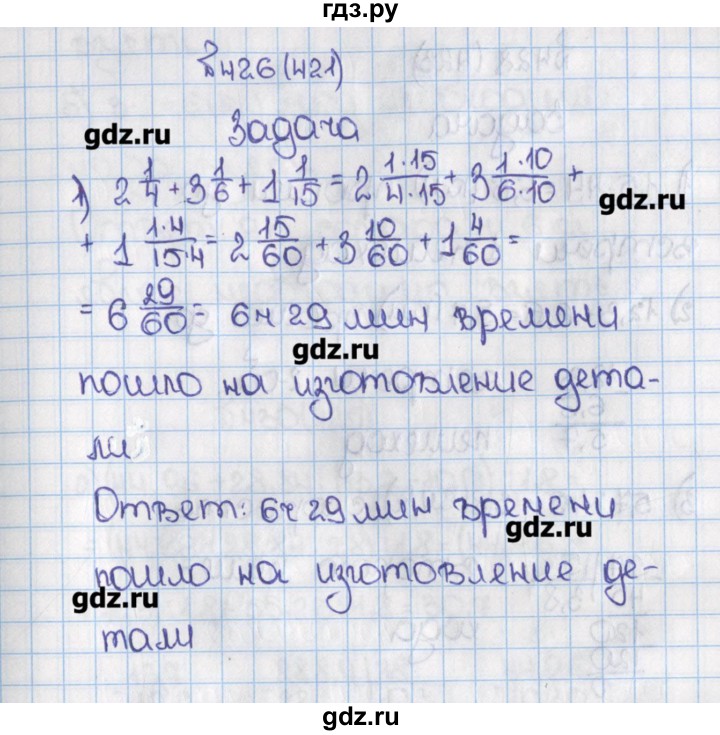 гдз.ру
№426 (421)
gdz.ru
Задача
1) 2 1/4 + 3 1/6 + 1 1/15 = 2 1·15/4·15 + 3 1·10/6·10 +
gdz.ru
+ 1 1·4/15·4 = 2 15/60 + 3 10/60 + 1 4/60 =
= 6 29/60 = 6ч 29 мин времени
gdz.ru
пошло на изготовление дета-
ли
Ответ: 6ч 29 мин времени
gdz.ru
пошло на изготовление де-
gdz.ru
тали
gdz.ru